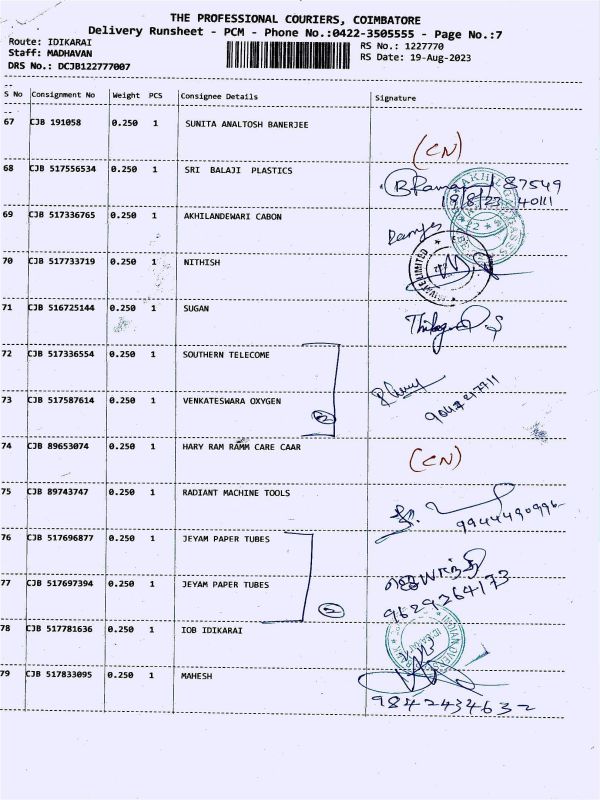 THE PROFESSIONAL COURIERS, COIMBATORE
Delivery Runsheet - PCM - Phone No.:0422-3505555 - Page No.:7
Route: IDIKARAI
Staff: MADHAVAN
DRS No.: DCJB122777007
RS No.: 1227770
RS Date: 19-Aug-2023
S No Consignment No Weight PCS Consignee Details Signature
67 CJB 191058 0.250 1 SUNITA ANALTOSH BANERJEE
(CN)
68 CJB 517556534 0.250 1 SRI BALAJI PLASTICS
87549
18/8/23 40111
69 CJB 517336765 0.250 1 AKHILANDEWARI CABON
70 CJB 517733719 0.250 1 NITHISH
71 CJB 516725144 0.250 1 SUGAN
72 CJB 517336554 0.250 1 SOUTHERN TELECOME
73 CJB 517587614 0.250 1 VENKATESWARA OXYGEN
2
74 CJB 89653074 0.250 1 HARY RAM RAMM CARE CAAR
(CN)
75 CJB 89743747 0.250 1 RADIANT MACHINE TOOLS
9944490996
76 CJB 517696877 0.250 1 JEYAM PAPER TUBES
77 CJB 517697394 0.250 1 JEYAM PAPER TUBES
2
9629264173
78 CJB 517781636 0.250 1 IOB IDIKARAI
79 CJB 517833095 0.250 1 MAHESH
9842434632